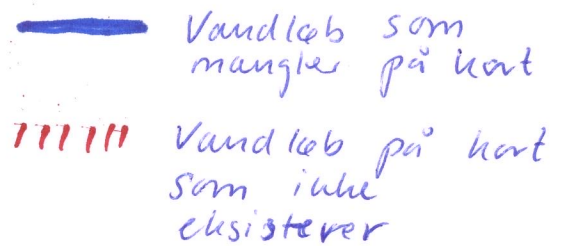 Vandløb som
mangler på kort
Vandløb på kort
som ikke
eksisterer